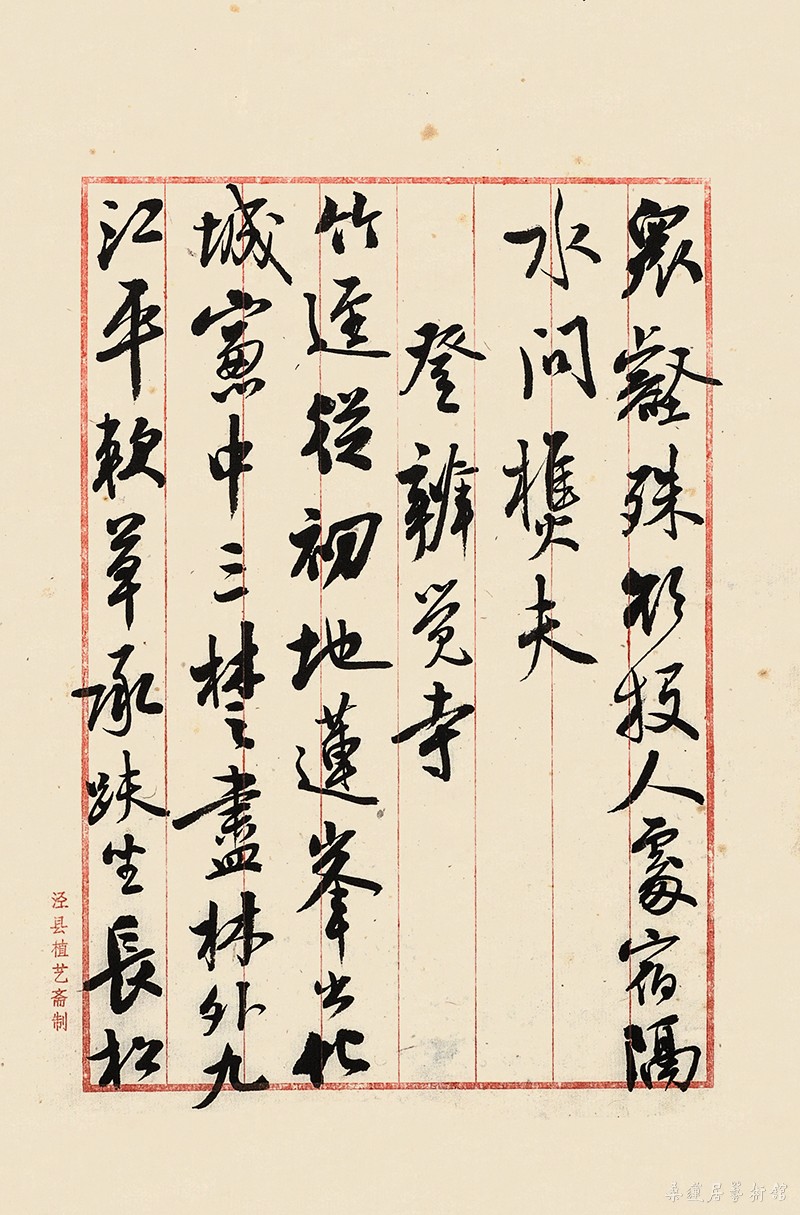 眾壑殊欲投人處宿隔
水問樵夫
登辨觉寺
竹逕從初地蓮峯出化
城窻中三楚盡林外九
江平軟草承趺坐長松
泾县植艺斋制
桑蓮居藝術馆